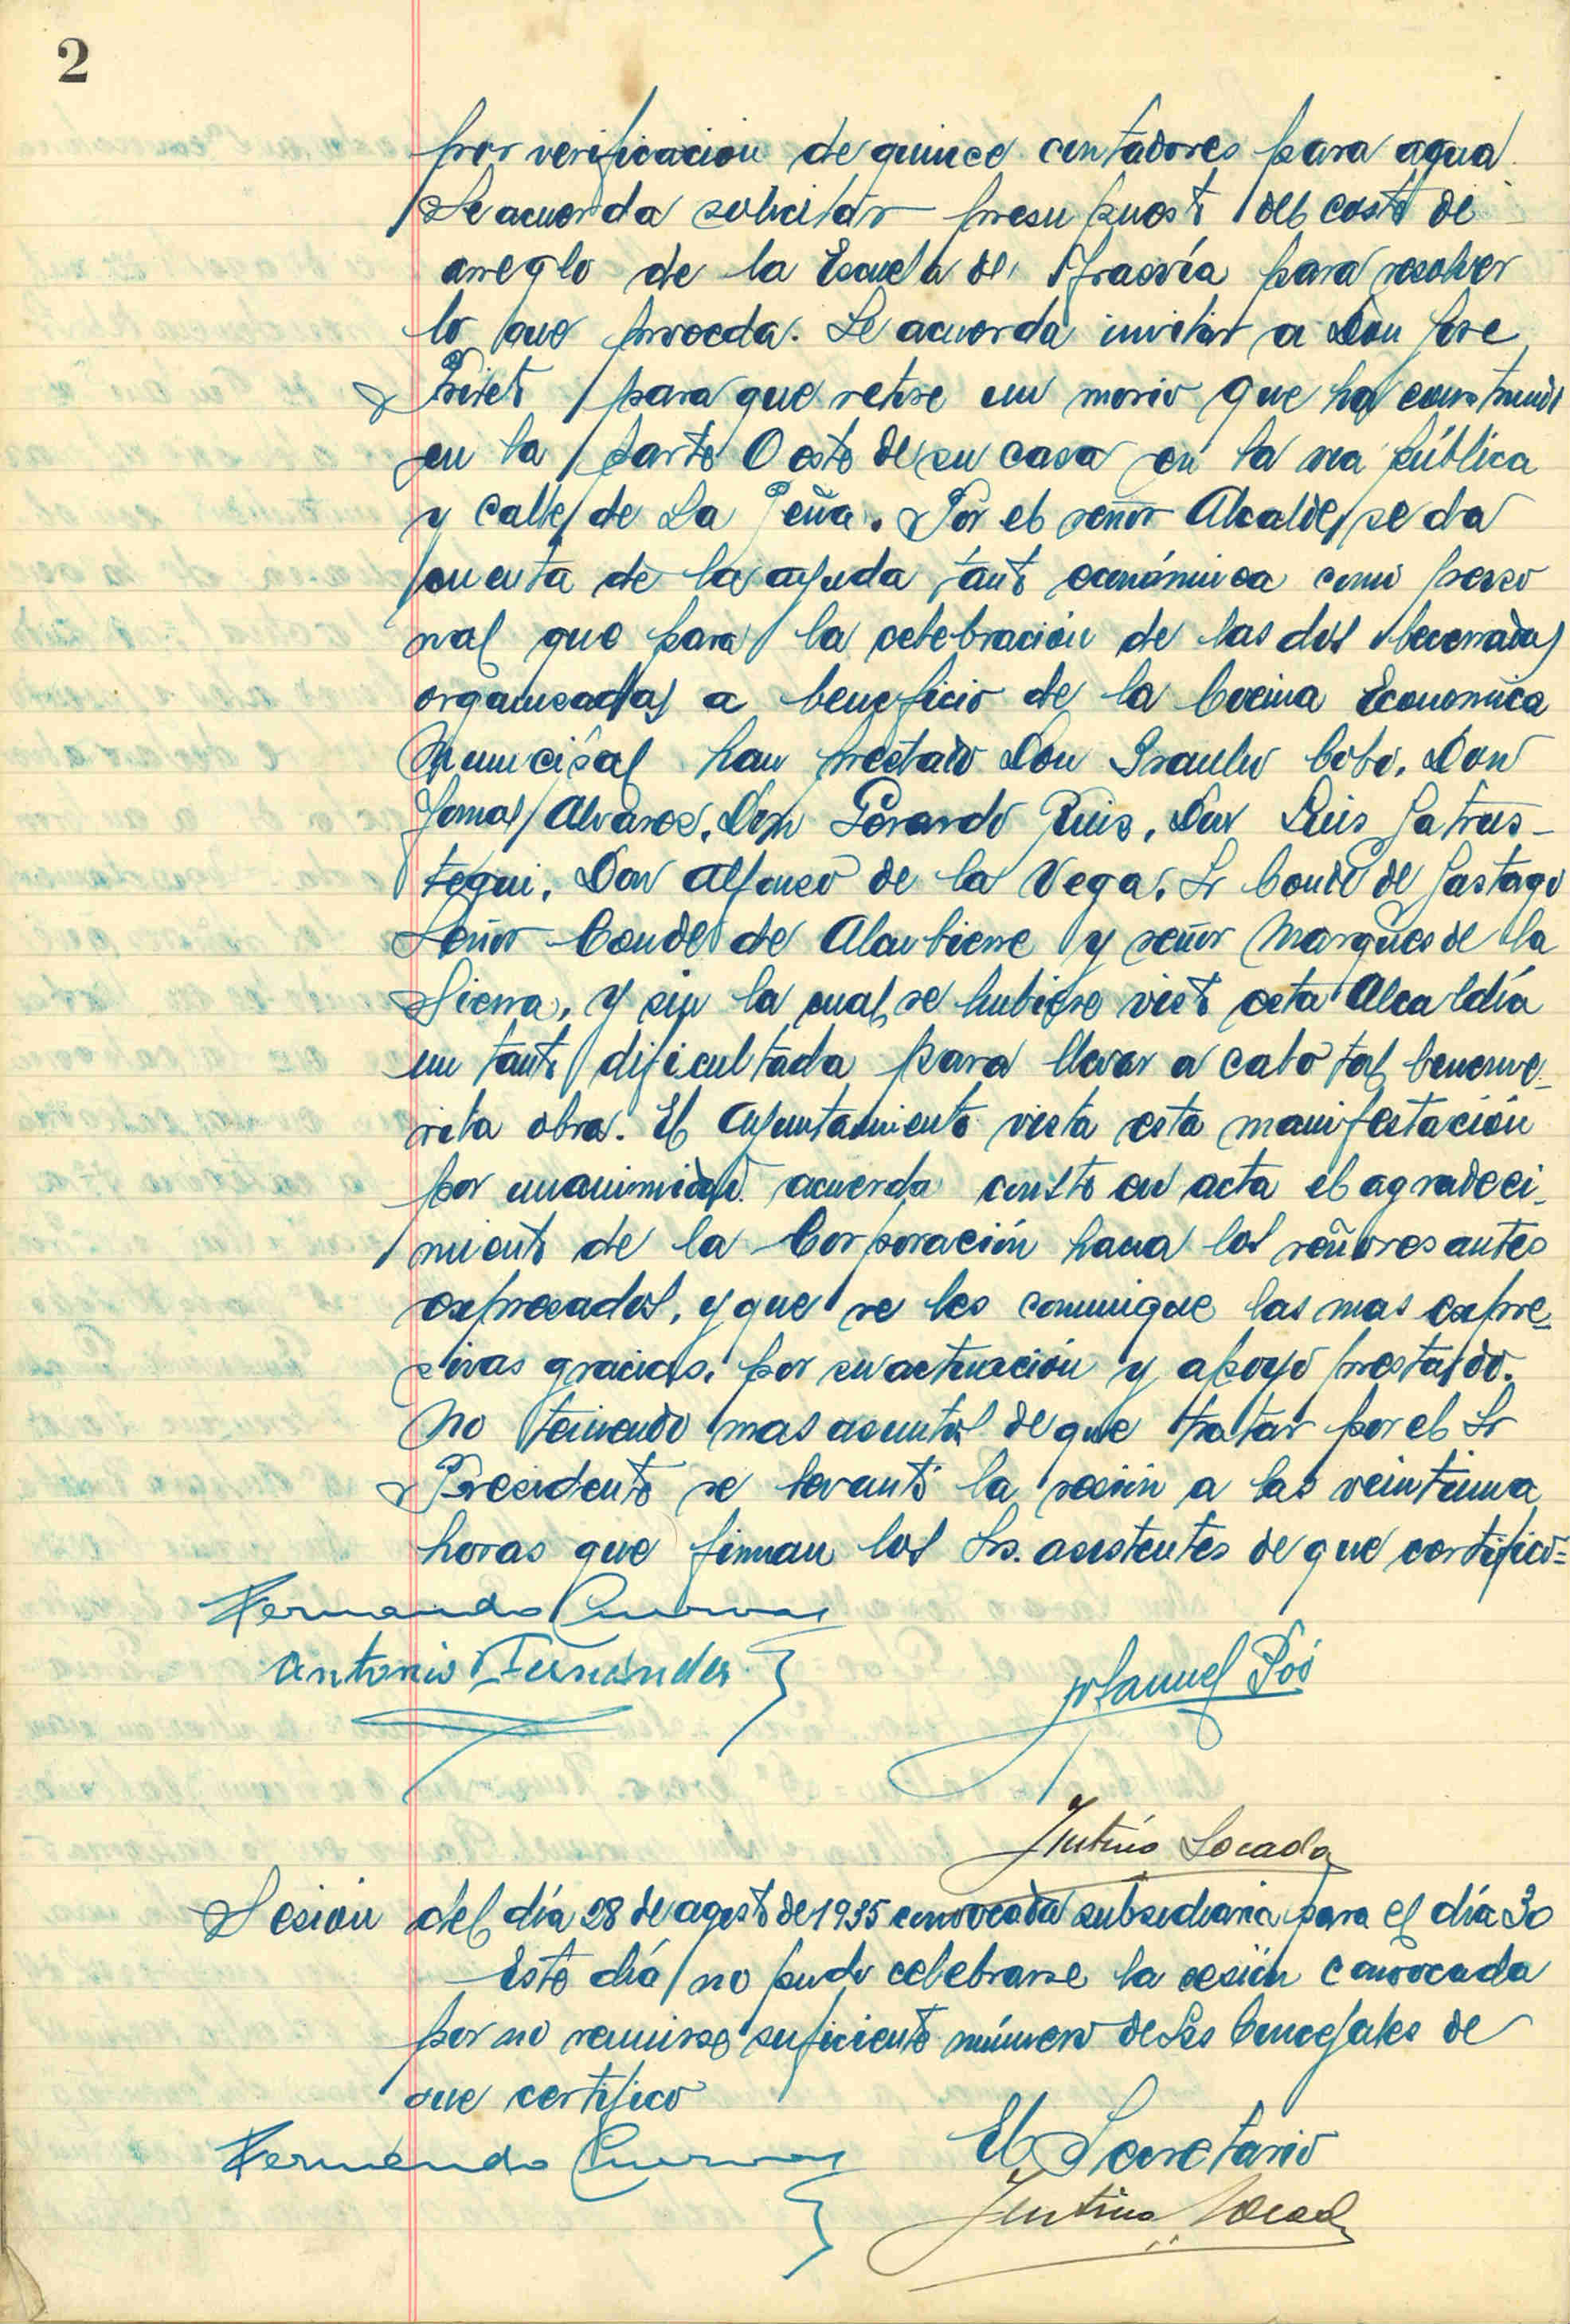 2
por verificacion de quince contadores para agua.
Se acuerda solicitar presupuesto del costo de
arreglo de la Escuela de para resolver
lo que proceda. Se acuerda invitar a Don Jose
para que retire un morio que ha construido
en la parte Oeste de su casa en la via pública
y calle de La Peña. Por el señor Alcalde se da
cuenta de la ayuda tanto económica como perso
nal que para la celebración de las dos becerradas
organizadas a beneficio de la Cocina Economica
Municipal han prestado Don Braulio Cobo, Don
Tomas Alvarez, Don Gerardo Ruiz, Don Luis Satrus-
tegui, Don Alfonso de la Vega, Sr Conde de Sastago
Señor Conde de Alcubierre y señor Marques de la
Sierra, y sin la cual se hubiese visto esta Alcaldía
un tanto dificultada para llevar a cabo tal beneme-
rita obra. El Ayuntamiento vista esta manifestación
por unanimidad acuerda conste en acta el agradeci-
miento de la Corporación hacia los señores antes
expresados, y que se les comunique las mas expre-
sivas gracias, por su actuación y apoyo prestado.
No teniendo mas asuntos de que tratar por el Sr
Presidente se levantó la sesión a las veintiuna
horas que firman los Srs. asistentes de que certifico=
Fernando Cuevas
Antonio Fernández
Manuel
Sesion del día 28 de agosto de 1935 convocada subsidiaria para el día 30
Este día no pudo celebrarse la sesión convocada
por no reunirse suficiente número de Srs Concejales de
que certifico
Fernando Cuevas El Secretario